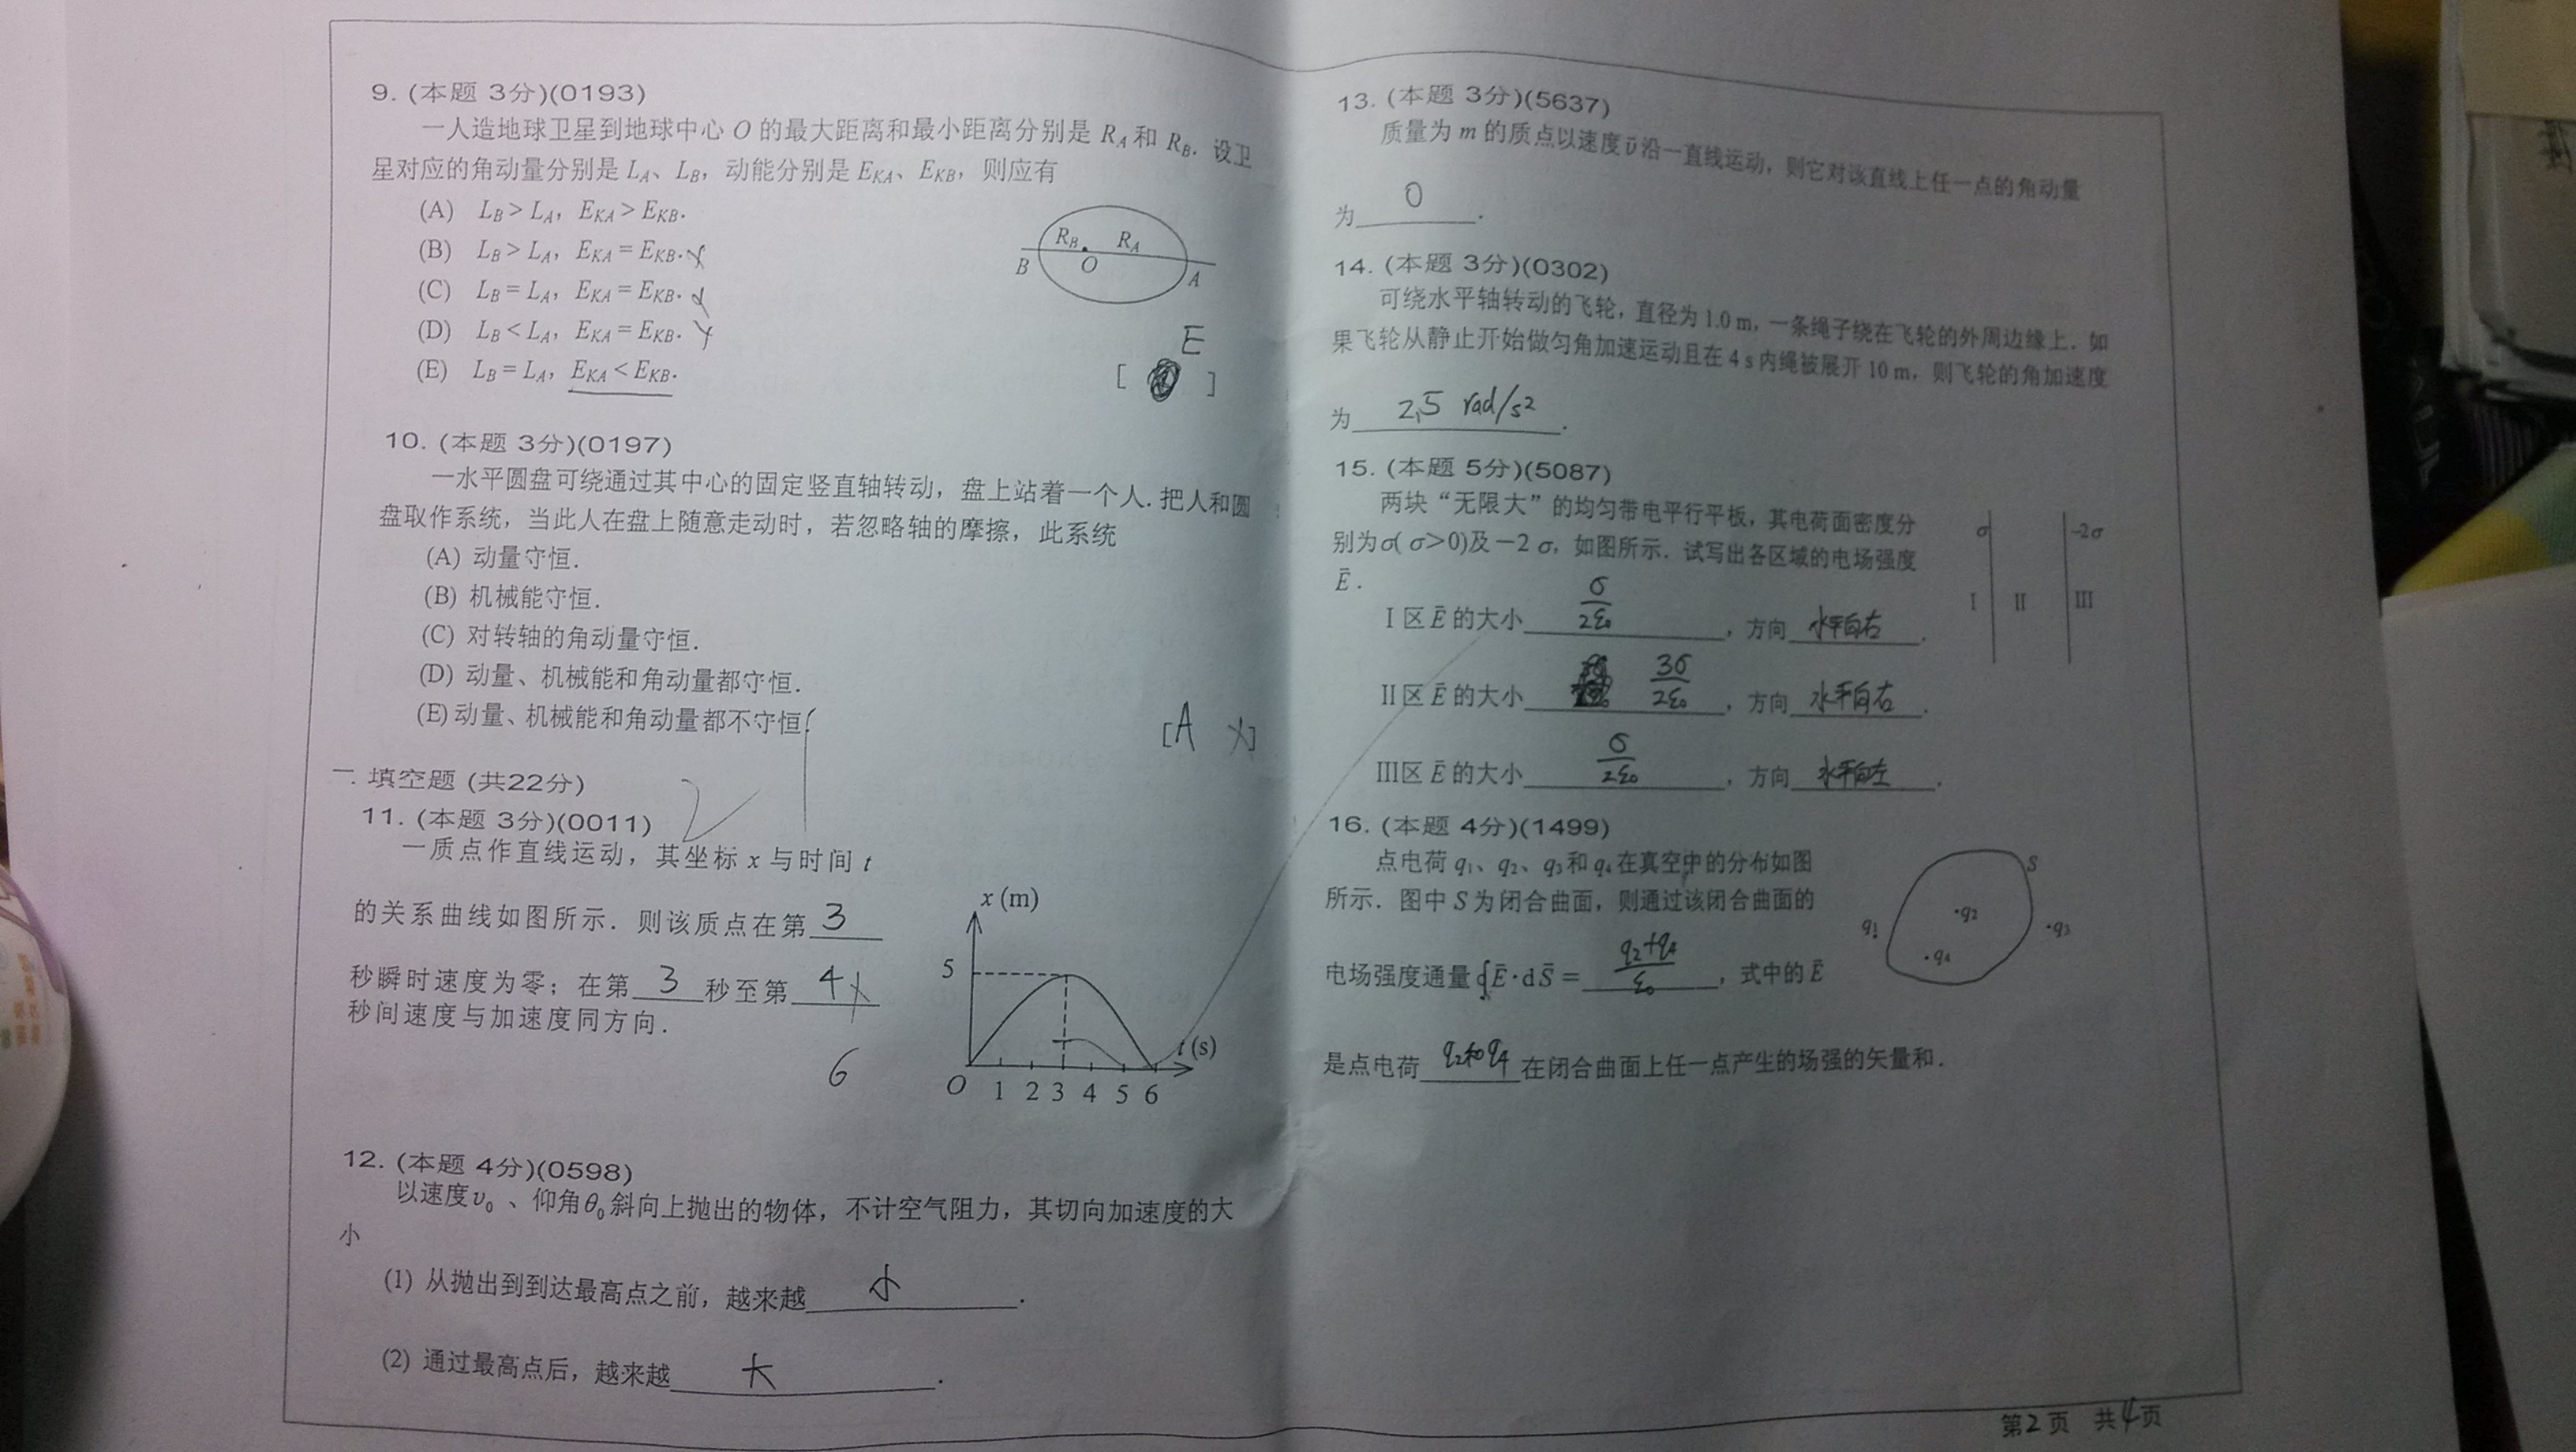 9. (本题 3分)(0193)
一人造地球卫星到地球中心 O 的最大距离和最小距离分别是 R_A 和 R_B. 设卫
星对应的角动量分别是 L_A、L_B, 动能分别是 E_KA、E_KB, 则应有
(A) L_B > L_A, E_KA > E_KB.
(B) L_B > L_A, E_KA = E_KB. ×
(C) L_B = L_A, E_KA = E_KB.
(D) L_B < L_A, E_KA = E_KB.
(E) L_B = L_A, E_KA < E_KB.
R_B R_A
B O A
E
[ ]
10. (本题 3分)(0197)
一水平圆盘可绕通过其中心的固定竖直轴转动, 盘上站着一个人. 把人和圆
盘取作系统, 当此人在盘上随意走动时, 若忽略轴的摩擦, 此系统
(A) 动量守恒.
(B) 机械能守恒.
(C) 对转轴的角动量守恒.
(D) 动量、机械能和角动量都守恒.
(E) 动量、机械能和角动量都不守恒.
[A ×]
填空题 (共22分)
11. (本题 3分)(0011)
一质点作直线运动, 其坐标 x 与时间 t
的关系曲线如图所示. 则该质点在第 3
秒瞬时速度为零; 在第 3 秒至第 4 ×
秒间速度与加速度同方向.
6
x (m)
5
t (s)
O 1 2 3 4 5 6
12. (本题 4分)(0598)
以速度 υ₀ 、仰角 θ₀ 斜向上抛出的物体, 不计空气阻力, 其切向加速度的大
小
(1) 从抛出到到达最高点之前, 越来越 小 .
(2) 通过最高点后, 越来越 大 .
13. (本题 3分)(5637)
质量为 m 的质点以速度 ῡ 沿一直线运动, 则它对该直线上任一点的角动量
为 0 .
14. (本题 3分)(0302)
可绕水平轴转动的飞轮, 直径为 1.0 m, 一条绳子绕在飞轮的外周边缘上. 如
果飞轮从静止开始做匀角加速运动且在 4 s 内绳被展开 10 m, 则飞轮的角加速度
为 2.5 rad/s² .
15. (本题 5分)(5087)
两块“无限大”的均匀带电平行平板, 其电荷面密度分
别为σ( σ>0)及－2 σ, 如图所示. 试写出各区域的电场强度
Ē .
σ -2σ
I II III
I 区 Ē 的大小 σ/2ε₀ , 方向 水平向右 .
II 区 Ē 的大小 3σ/2ε₀ , 方向 水平向右 .
III区 Ē 的大小 σ/2ε₀ , 方向 水平向左 .
16. (本题 4分)(1499)
点电荷 q₁、q₂、q₃和 q₄ 在真空中的分布如图
所示. 图中 S 为闭合曲面, 则通过该闭合曲面的
电场强度通量 ∮Ē·dS̄ = (q₂+q₄)/ε₀ , 式中的 Ē
是点电荷 q₂和q₄ 在闭合曲面上任一点产生的场强的矢量和.
S
q₁ ·q₂ ·q₃
·q₄
第2页 共4页